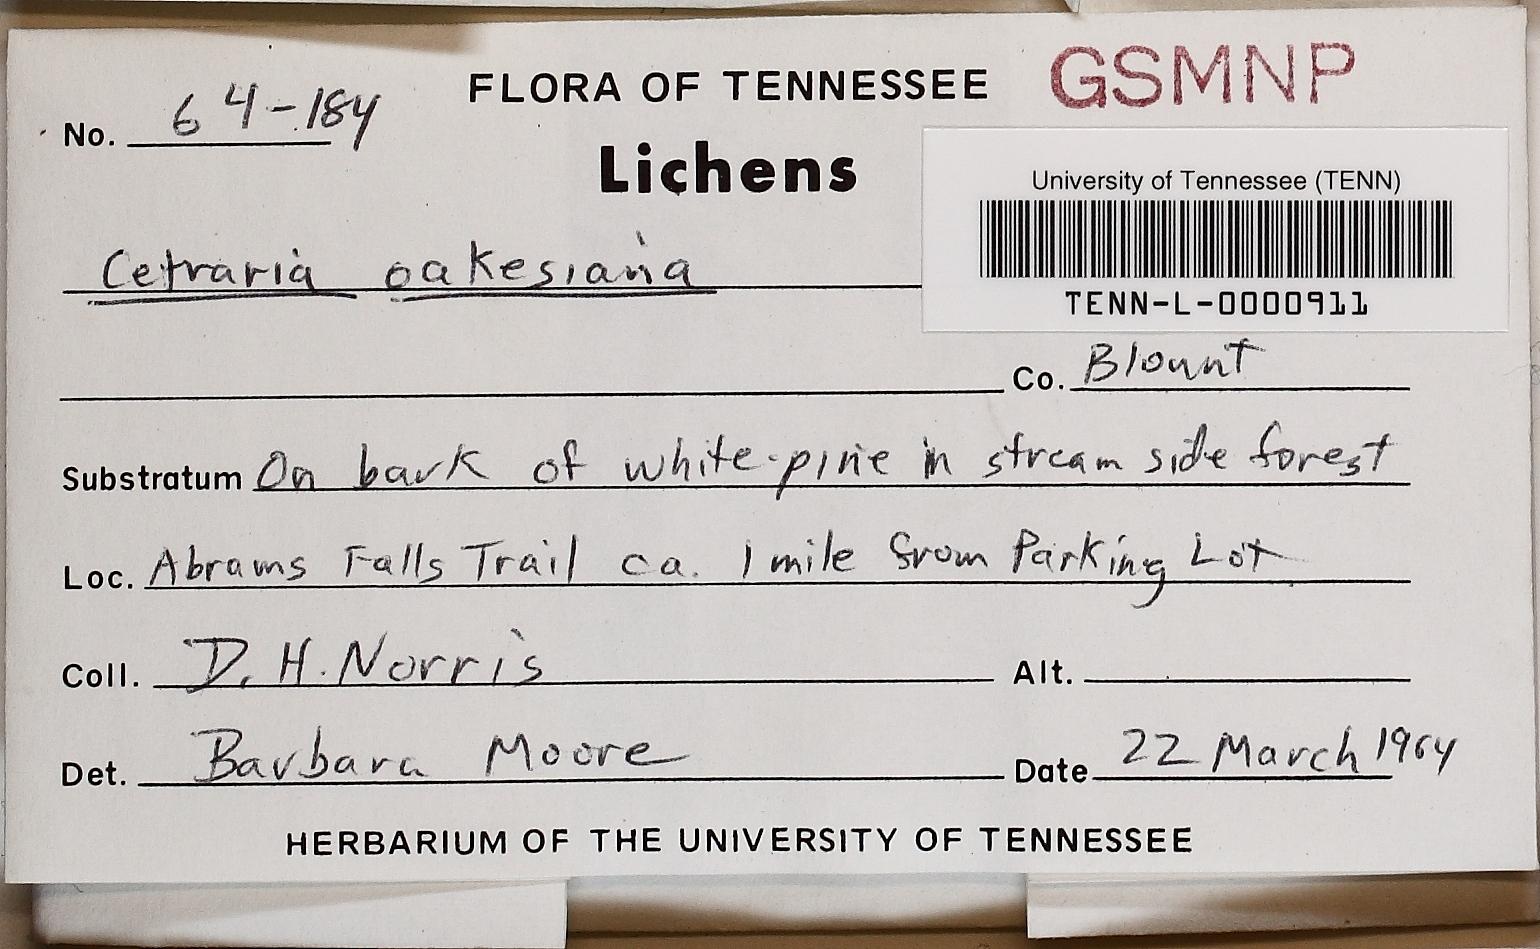 No. 64-184
FLORA OF TENNESSEE
GSMNP
Lichens
University of Tennessee (TENN)
TENN-L-0000911
Cetraria oakesiana
Co. Blount
Substratum On bark of white-pine in stream side forest
Loc. Abrams Falls Trail ca. 1 mile from Parking Lot
Coll. D. H. Norris
Alt.
Det. Barbara Moore
Date 22 March 1964
HERBARIUM OF THE UNIVERSITY OF TENNESSEE